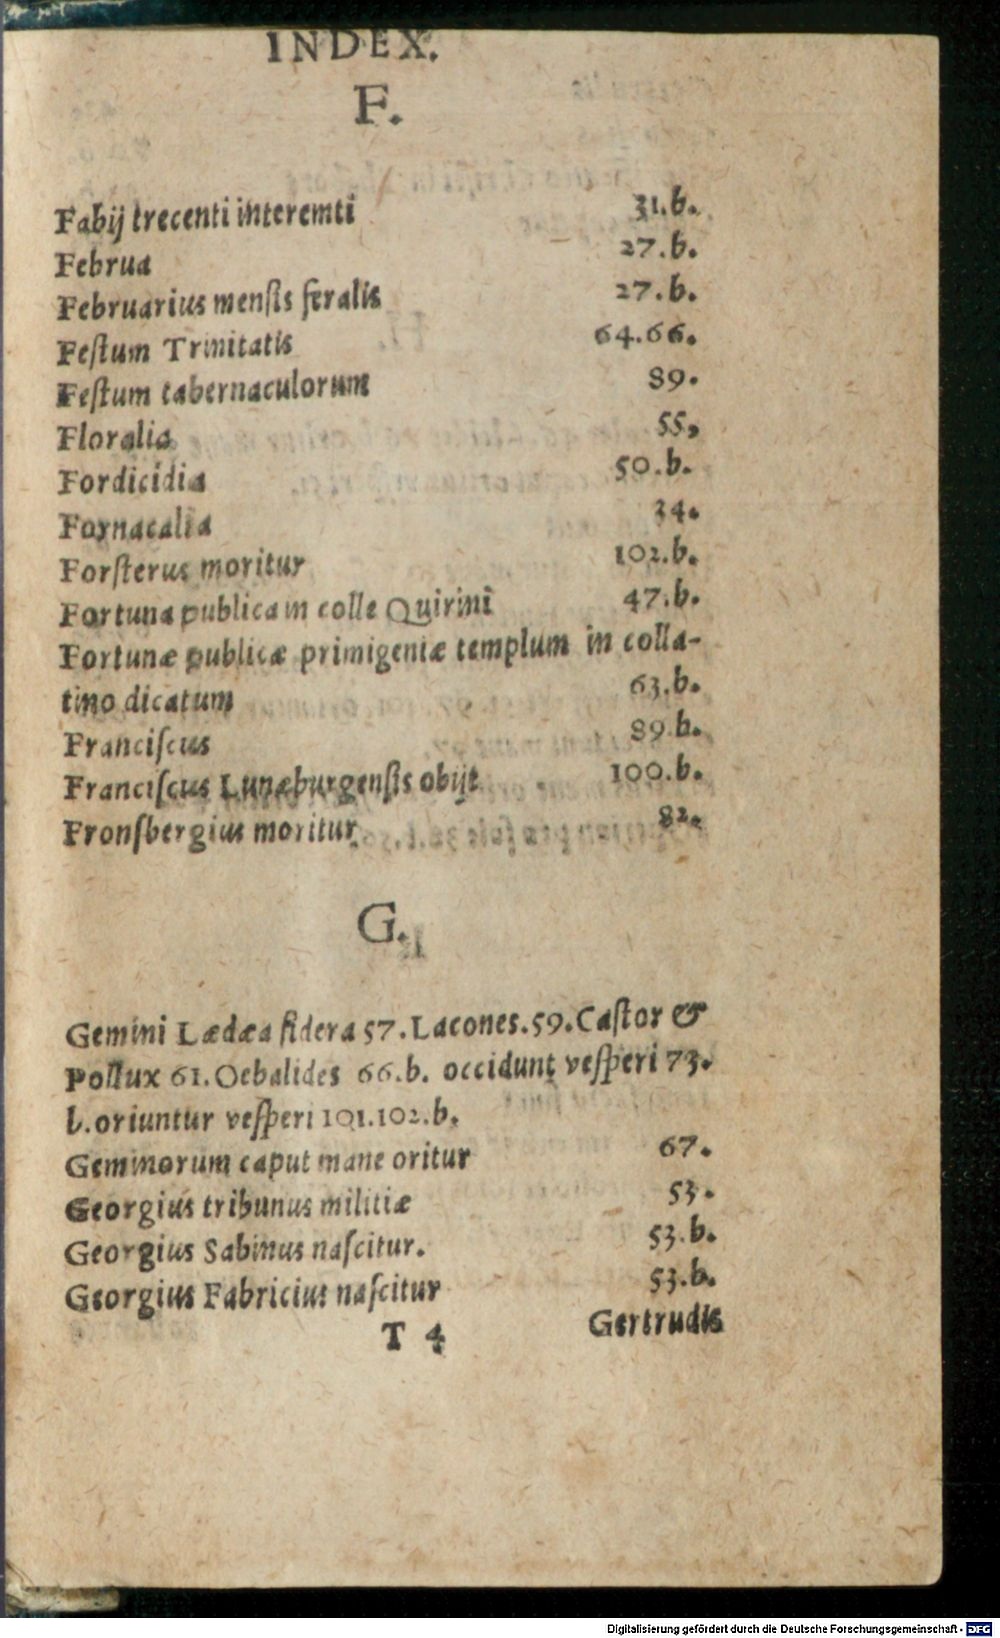 INDEX.
F.
Fabij trecenti interemti 31.b.
Februa 27.b.
Februarius menſis feralis 27.b.
Feſtum Trinitatis 64.66.
Feſtum tabernaculorum 89.
Floralia 55,
Fordicidia 50.b.
Fornacalia 34.
Forſterus moritur 102.b.
Fortuna publica in colle Quirini 47.b.
Fortunæ publicæ primigeniæ templum in colla-
tino dicatum 63.b.
Franciſcus 89.b.
Franciſcus Lunæburgenſis obijt 100.b.
Fronſbergius moritur 82.
G.
Gemini Lædæa ſidera 57.Lacones.59.Caſtor &
Pollux 61.Oebalides 66.b. occidunt veſperi 73.
b.oriuntur veſperi 101.102.b.
Geminorum caput mane oritur 67.
Georgius tribunus militiæ 53.
Georgius Sabinus naſcitur. 53.b.
Georgius Fabricius naſcitur 53.b.
T 4 Gertrudis
Digitalisierung gefördert durch die Deutsche Forschungsgemeinschaft - DFG